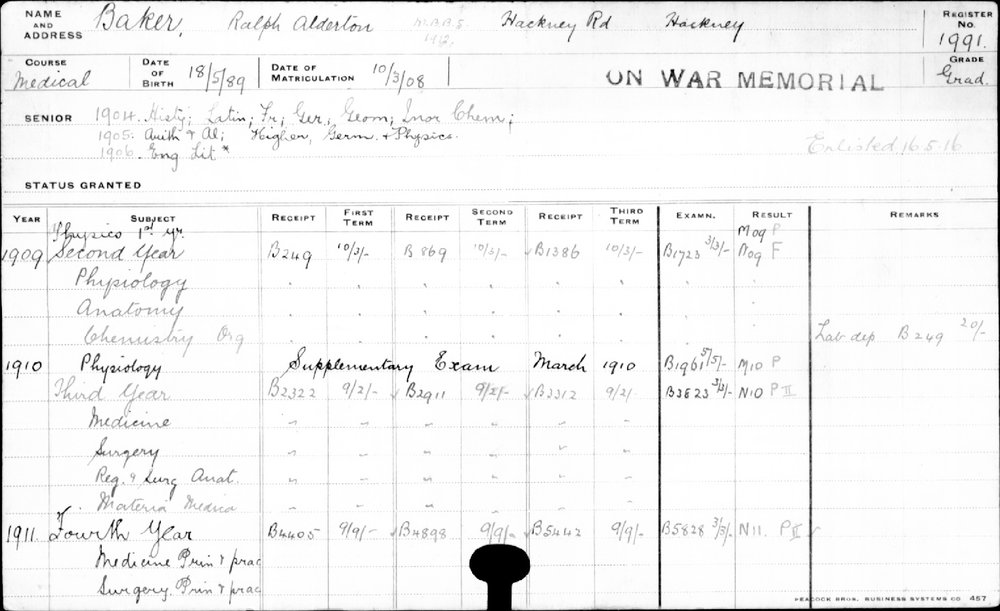 NAME AND ADDRESS Baker, Ralph Alderton M.B.B.S. Hackney Rd Hackney REGISTER No. 1991.
COURSE Medical DATE OF BIRTH 18/5/89 DATE OF MATRICULATION 10/3/08 ON WAR MEMORIAL GRADE Grad.
SENIOR 1904. Histy; Latin; Fr; Ger; Geom; Inor Chem;
1905. Arith & Al; Higher, Germ. & Physics.
1906. Eng Lit* Enlisted 16.5.16
STATUS GRANTED
YEAR SUBJECT RECEIPT FIRST TERM RECEIPT SECOND TERM RECEIPT THIRD TERM EXAMN. RESULT REMARKS
Physics 1st yr. M09 P
1909 Second Year B249 10/3/- B869 10/3/- B1386 10/3/- B1723 3/3/- N09 F
Physiology
Anatomy
Chemistry Org Lab dep B249 20/-
1910 Physiology Supplementary Exam March 1910 B1961 5/5/- M10 P
Third Year B2322 9/2/- B2911 9/2/- B3312 9/2/- B3823 3/3/- N10 P II
Medicine " " " " " "
Surgery " " " " " "
Reg. & Surg Anat. " " " " " "
Materia Medica " " " " " "
1911. Fourth Year B4405 9/9/- B4898 9/9/- B5442 9/9/- B5828 3/3/- N11. P II
Medicine Prin & prac
Surgery. Prin & prac
PEACOCK BROS. BUSINESS SYSTEMS CO 457